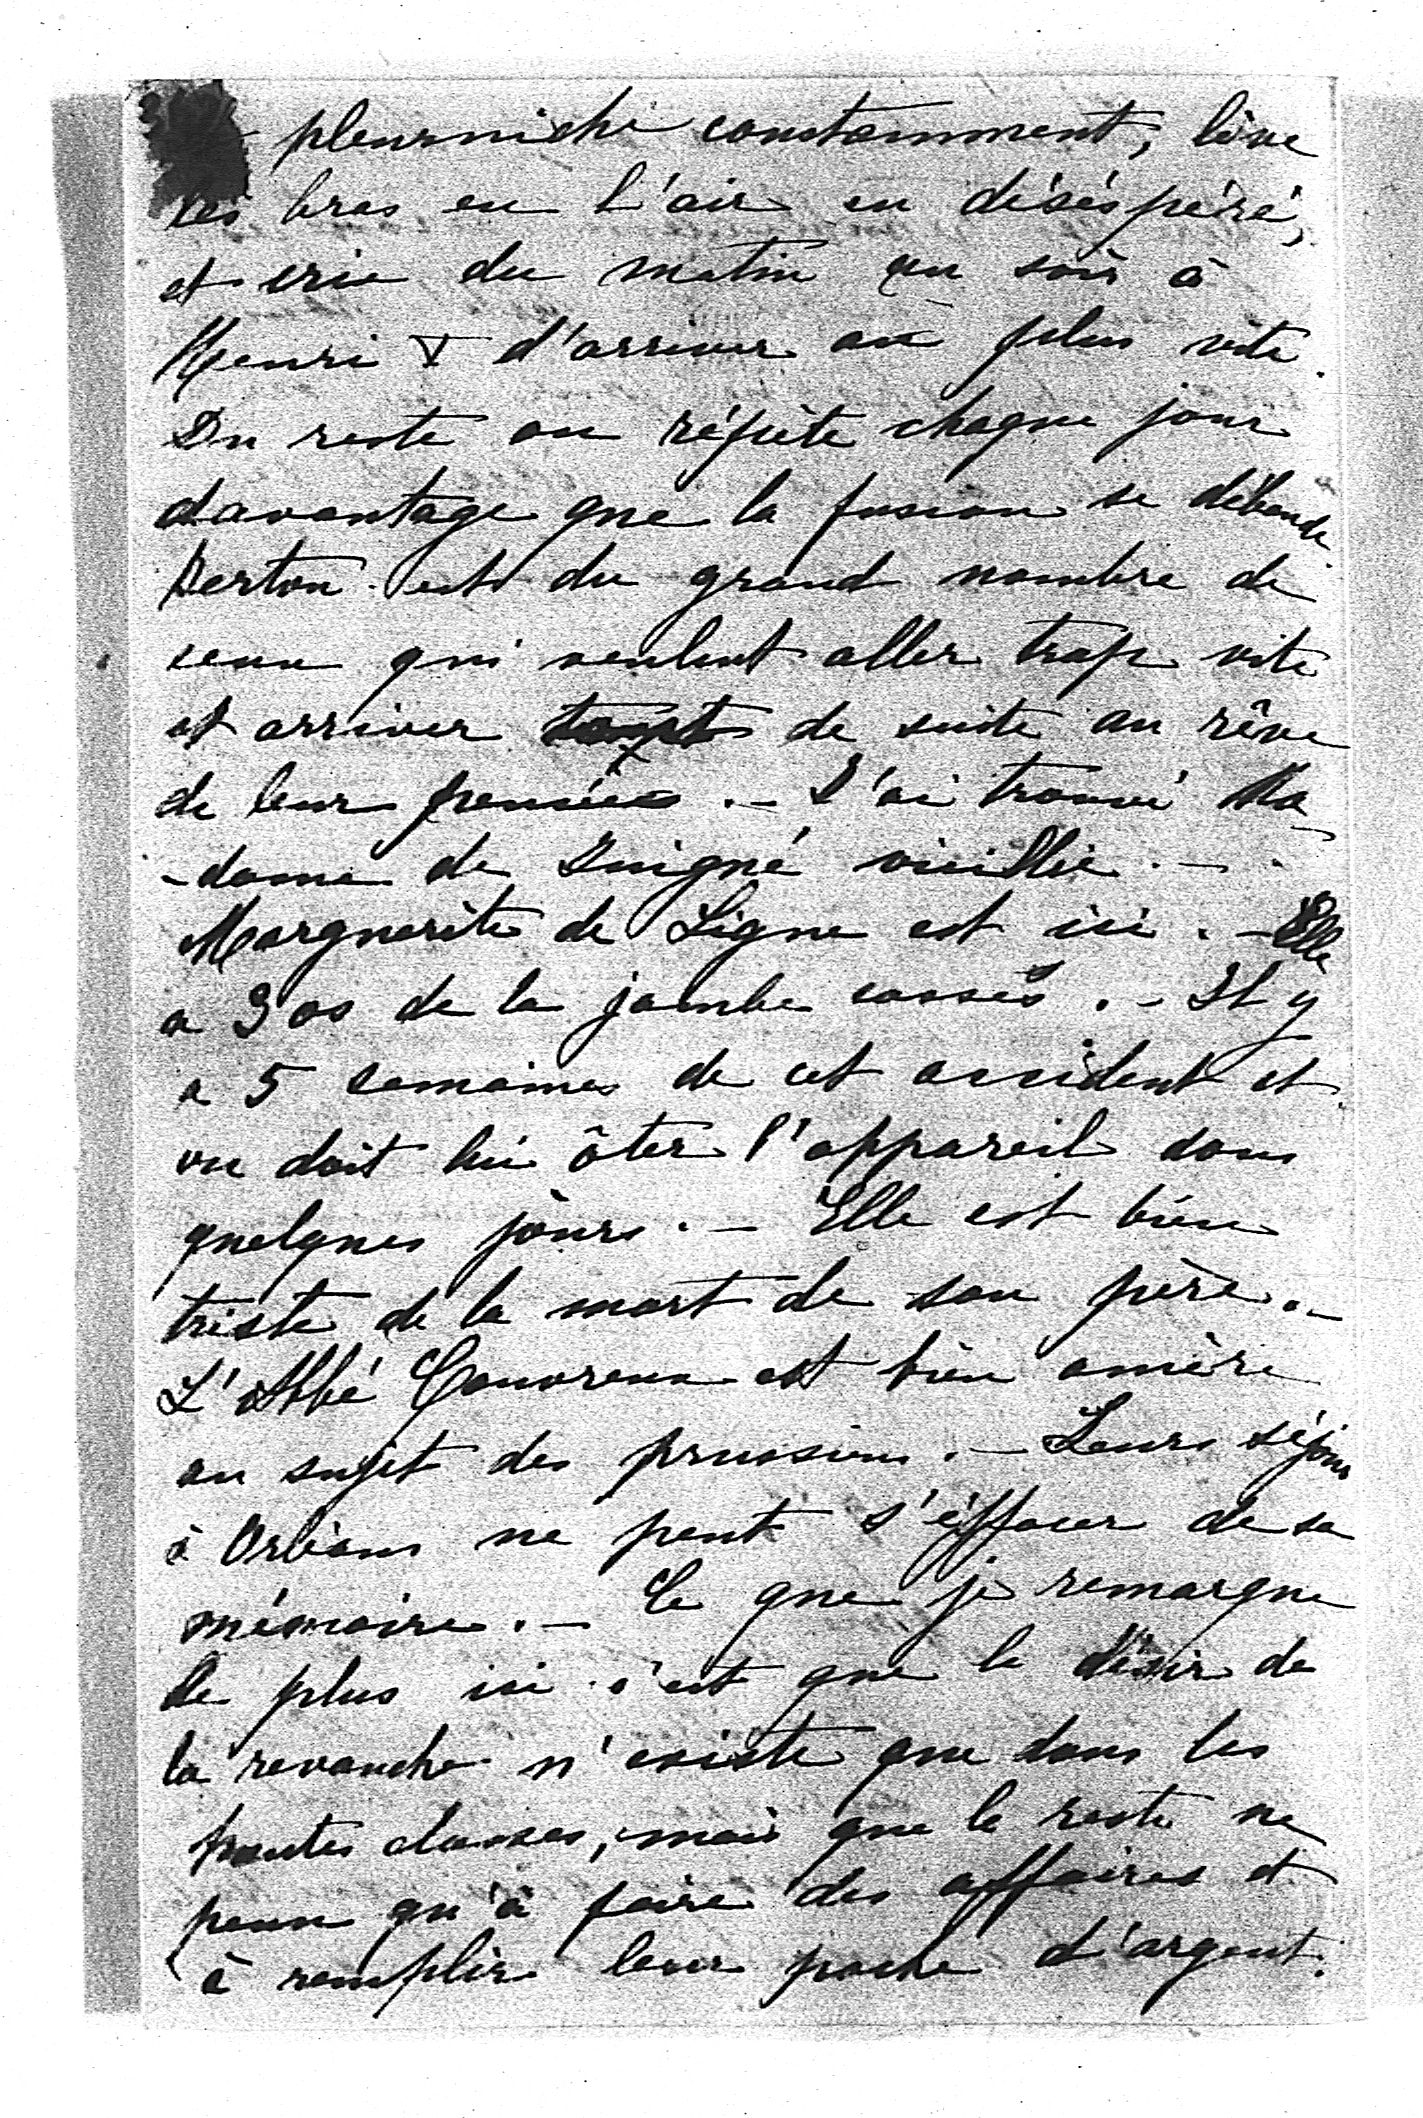 pleurniche constamment, lève
les bras en l'air en déséspéré,
et crie du matin au soir à
Henri V d'arriver au plus vite.
Du reste on répète chaque jour
davantage que la fusion se débande
Berton est du grand nombre de
ceux qui veulent aller trop vite
et arriver de suite au rêve
de leur pensées. - J'ai trouvé Ma
-dame de Guigné vieillie. -
Marguerite de Ligne est ici. - Elle
a 3 os de la jambe cassés. - Il y
a 5 semaines de cet accident et
on doit lui ôter l'appareil dans
quelques jours. - Elle est bien
triste de la mort de son père. -
L'Abbé Couvreux est bien amère
au sujet des prussiens. - Leurs séjour
à Orléans ne peut s'éffacer de sa
mémoire. - Ce que je remarque
le plus ici c'est que le désir de
la revanche n'existe que dans les
hautes classes, mais que le reste ne
pense qu'à faire des affaires et
à remplir leur poche d'argent.